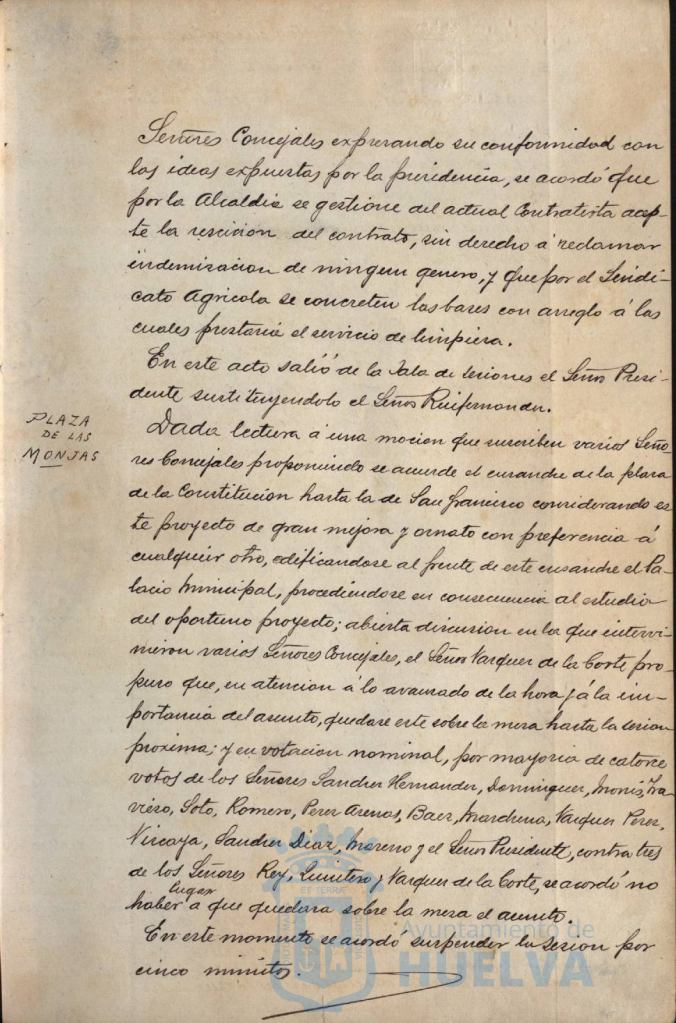 Señores Concejales expresando su conformidad con
las ideas expuestas por la presidencia, se acordó que
por la Alcaldia se gestione del actual Contratista acep-
te la rescicion del contrato, sin derecho á reclamar
indemisacion de ningun genero, y que por el Sindi-
cato Agricola se concreten las bases con arreglo á las
cuales prestaria el servicio de limpiesa.
En este acto salió de la Sala de sesiones el Señor Presi-
dente sustituyendolo el Señor Ruifernandez.
PLAZA
DE LAS
MONJAS
Dada lectura á una mocion que suscriben varios Seño-
res Concejales proponiendo se acuerde el ensanche de la plaza
de la Constitución hasta la de San Francisco considerando es
te proyecto de gran mejora y ornato con preferencia á
cualquier otro, edificandose al frente de este ensanche el Pa-
lacio Municipal, procediendose en consecuencia al estudio
del oportuno proyecto; abierta discusion en la que intervi-
nieron varios Señores Concejales, el Señor Vazquez de la Corte pro-
puso que, en atencion á lo avanzado de la hora y á la im-
portancia del asunto, quedase este sobre la mesa hasta la sesion
proxima; y en votacion nominal, por mayoria de catorce
votos de los Señores Sanchez Hernandez, Dominguez, Monis, Tra-
viero, Soto, Romero, Perez Arenas, Baez, Marchena, Vazquez Perez,
Vizcaya, Sanchez Diaz, Moreno y el Señor Presidente, contra tres
de los Señores Rey, Quintero y Vazquez de la Corte, se acordó no
lugar
haber a que quedara sobre la mesa el asunto.
En este momento se acordó suspender la sesion por
cinco minutos.
Ayuntamiento de
HUELVA